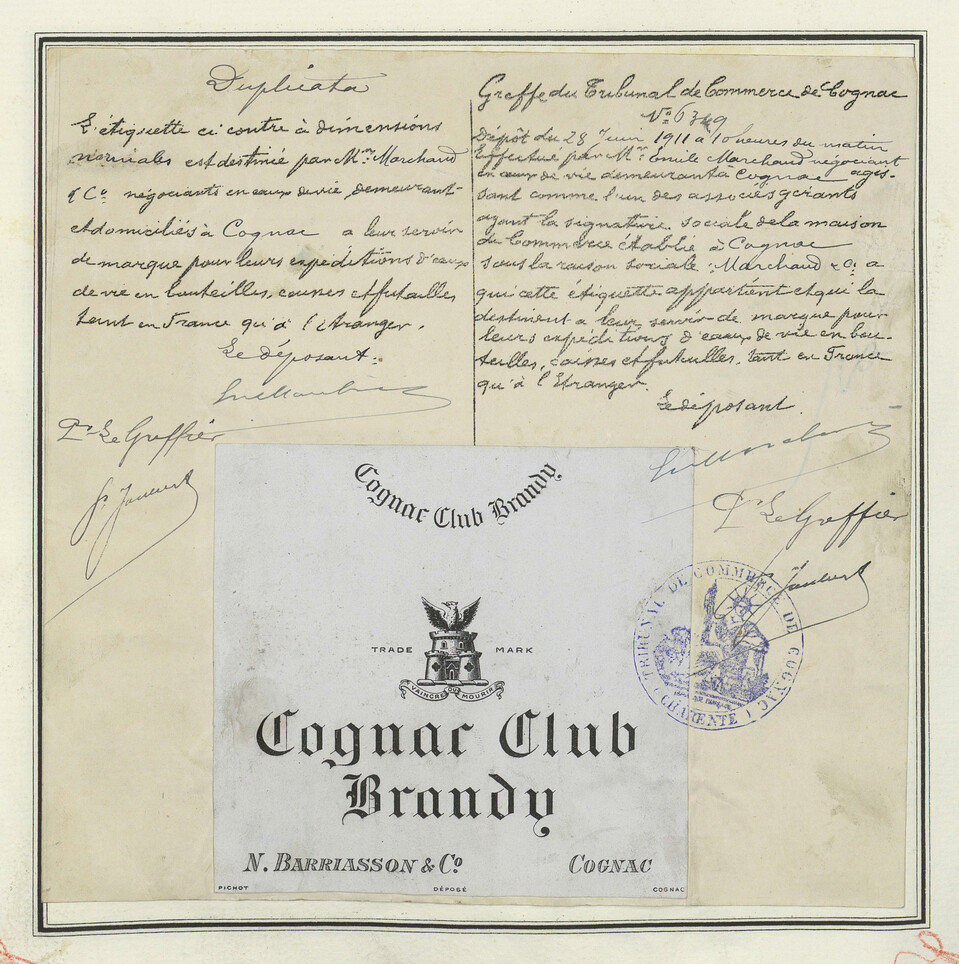 Duplicata
L'étiquette ci contre à dimensions
normales est destinée par Mrs Marchaud
& Co négociants en eaux de vie, demeurant
et domiciliés à Cognac a leur servir
de marque pour leurs expéditions d'eaux
de vie en bouteilles, caisses et futailles
tant en France qu'à l'étranger.
Le déposant:
Pr Le Greffier
Greffe du Tribunal de Commerce de Cognac
No 6349
Dépôt du 28 Juin 1911 à 10 heures du matin
Effectué par Mr Emile Marchaud négociant
en eaux de vie demeurant à Cognac agis-
sant comme l'un des associés gérants
ayant la signature sociale de la maison
de Commerce établie à Cognac
sous la raison sociale: Marchaud & Co a
qui cette étiquette appartient et qui la
destinent a leur servir de marque pour
leurs expéditions d'eaux de vie en bou-
teilles, caisses et futailles, tant en France
qu'à l'Etranger.
Le déposant.
Pr Le Greffier
Cognac Club Brandy
TRADE MARK
VAINCRE OU MOURIR
Cognac Club
Brandy
N. BARRIASSON & Co COGNAC
PICHOT DÉPOSÉ COGNAC
TRIBUNAL DE COMMERCE DE COGNAC
(CHARENTE)